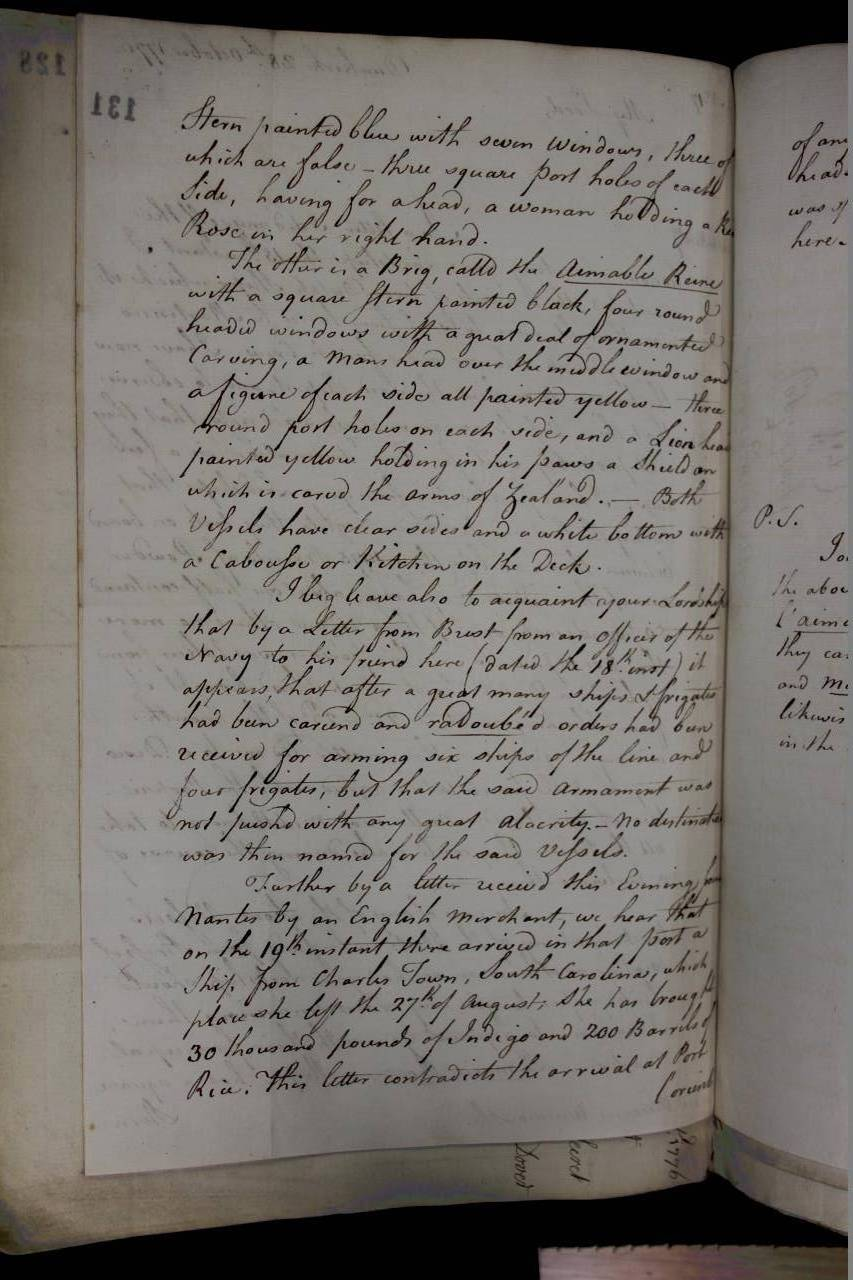 128
131
Dunkirk 28th October 177
My Lord
Stern painted blue with seven windows, three of
which are false – three square port holes of each
Side, having for a head, a woman holding a
Rose in her right hand.
The other is a Brig, calld the Aimable Reine
with a square stern painted black, four round
headed windows with a great deal of ornamented
Carving, a Mans head over the middle window and
a figure of each side all painted yellow — three
round port holes on each side, and a Lion head
painted yellow holding in his paws a Shield on
which is carvd the arms of Zealand. — Both
Vessels have clear sides and a white bottom with
a Cabousse or Kitchen on the Deck.
I beg leave also to acquaint your Lordship
that by a Letter from Brest from an officer of the
Navy to his friend here (dated the 18th inst) it
appears, that after a great many ships & frigates
had been cariend and radoubé'd orders had been
received for arming six ships of the line and
four frigates, but that the said armament was
not pushd with any great alacrity. – No destination
was then named for the said Vessels.
Further by a letter receivd this Evening from
Nantes by an English merchant, we hear that
on the 19th instant there arrived in that port a
Ship from Charles Town, South Carolina, which
place she left the 27th of August; She has brought
30 thousand pounds of Indigo and 200 Barrils of
Rice. This letter contradicts the arrival at Port
Lorient
of any
head
was
here
P.S.
the abov
l'aim
they ca
and
likewis
in the
1776
Dover